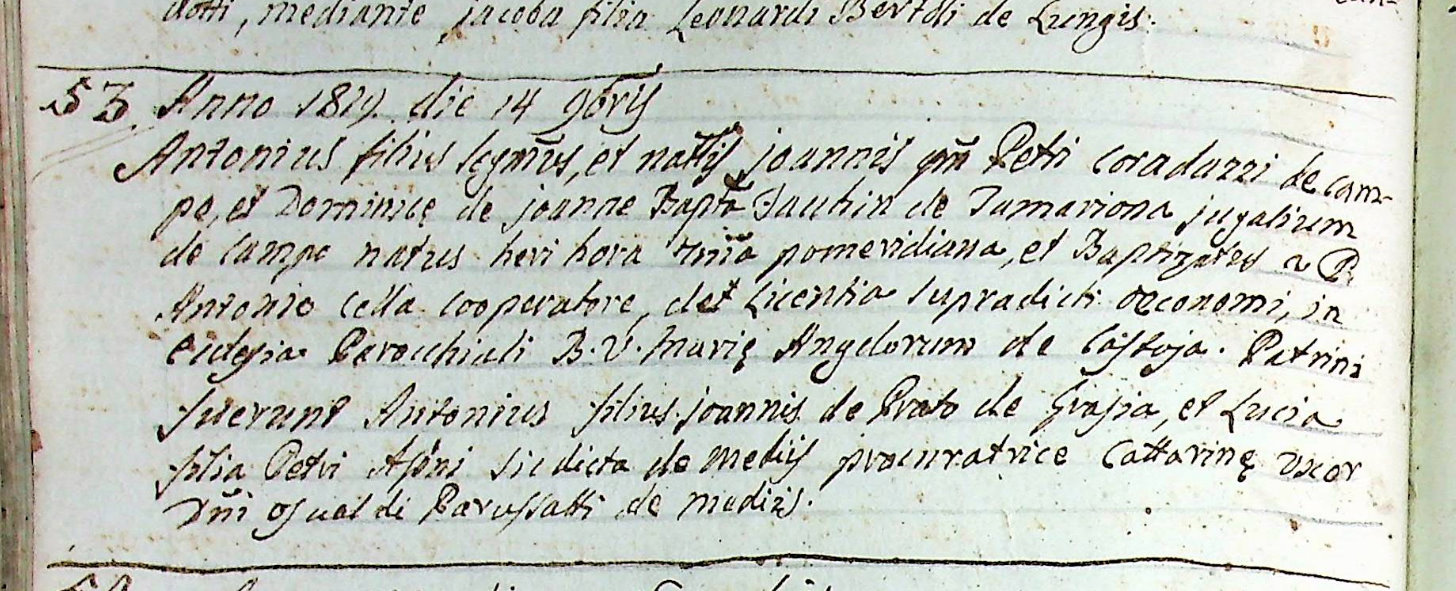 dotti, mediante Jacoba filia Leonardi Bertoli de Lungis.
53 Anno 1819. die 14 9bris
Antonius filius legmus, et nattis Joannis qm Petri Coradazzi de Cam-
po, et Dominicę de Joanne Bapta Zauchin de Tamariona jugalium
de Campo natus heri hora pomeridiana, et Baptizatus a P.
Antonio Cella Cooperatore, de Licentia supradicti Oeconomi, in
ecclesia Parochiali B. V. Marię Angelorum de Castoja. Patrini
fuerunt Antonius filius Joannis de Prato de Grasia, et Lucia
filia Petri sic dicta de Mediis procuratrice Cattarinę Uxor
Dni Osualdi Parussatti de Mediis.